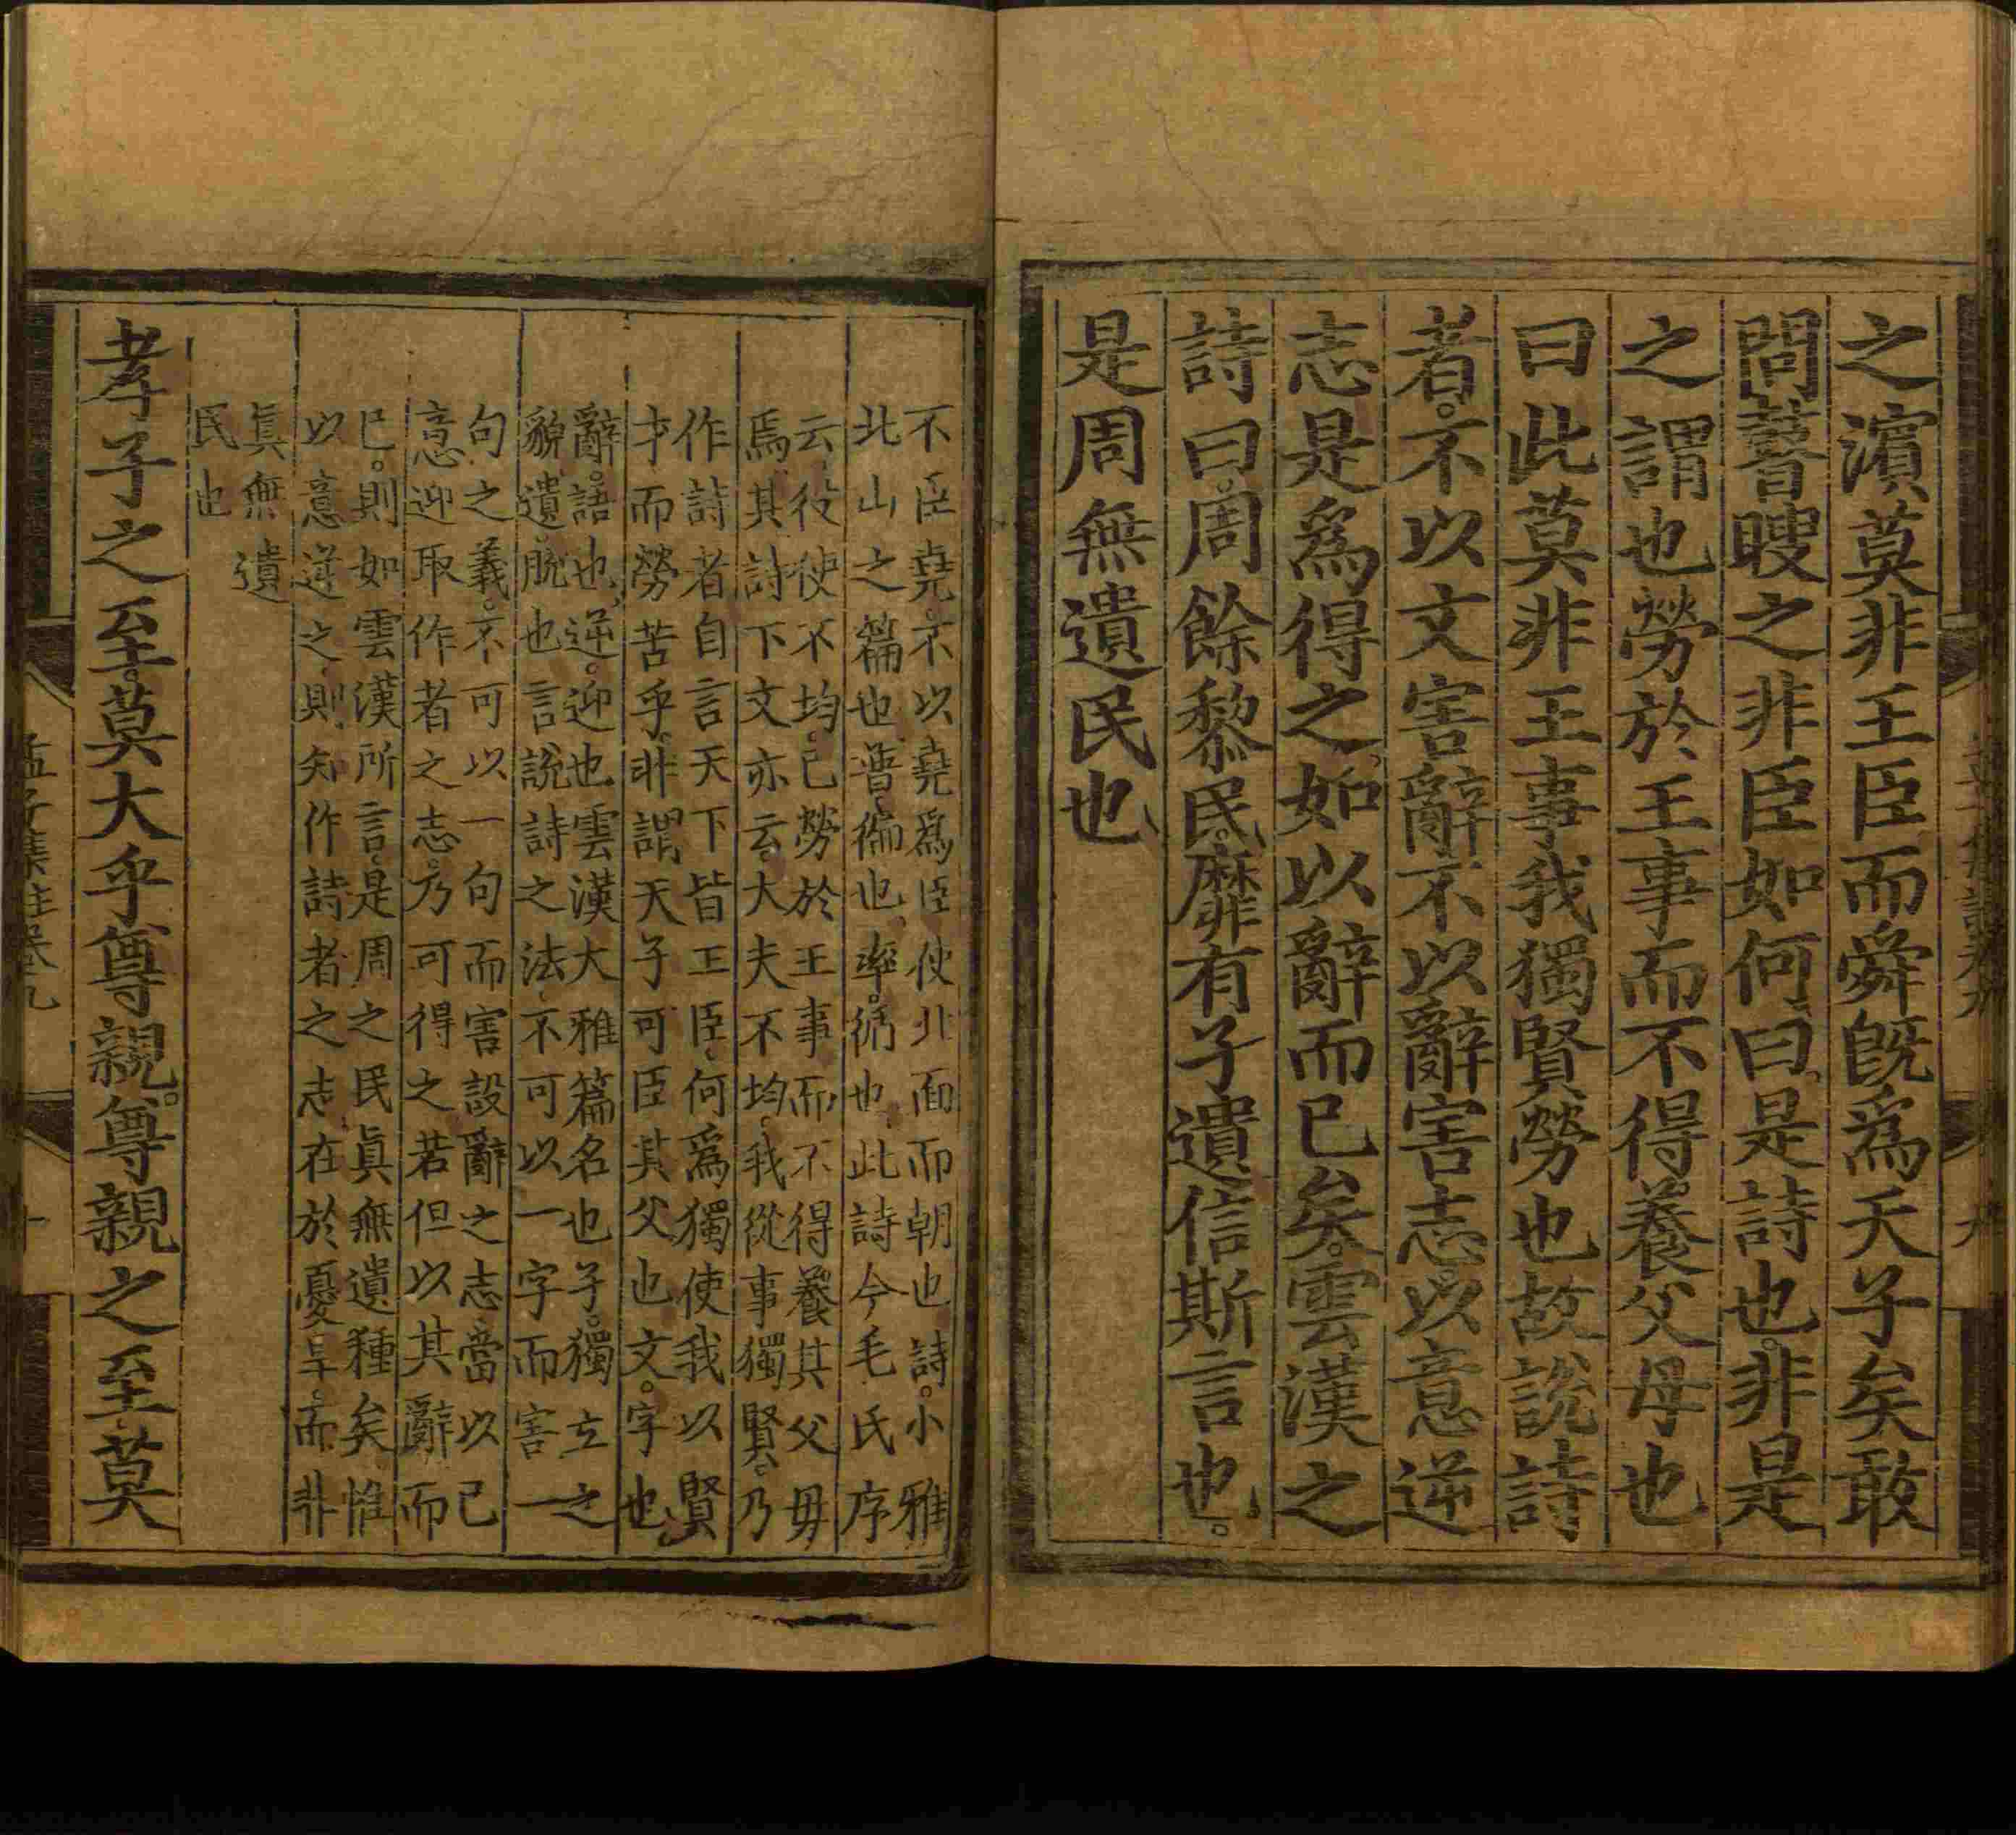 孟子集註卷九 九
之濱莫非王臣而舜旣爲天子矣敢
問瞽瞍之非臣如何曰是詩也。非是
之謂也勞於王事而不得養父母也
曰此莫非王事我獨賢勞也故說詩
者。不以文害辭不以辭害志以意逆
志是爲得之、如以辭而已矣。雲漢之
詩曰。周餘黎民。靡有孑遺信斯言也。
是周無遺民也、
不臣堯。不以堯爲臣使北面而朝也詩。小雅
北山之篇也普、徧也率。循也、此詩今毛氏序
云、役使不均。己勞於王事而不得養其父母
焉其詩下文亦云、大夫不均。我從事獨賢。乃
作詩者自言天下皆王臣、何爲獨使我以賢
才而勞苦乎。非謂天子可臣其父也文。字也、
辭。語也、逆。迎也雲漢大雅篇名也孑。獨立之
貌遺。脫也言說詩之法、不可以一字而害一
句之義。不可以一句而害設辭之志、當以己
意迎取作者之志。乃可得之若但以其辭而
已。則如雲漢所言、是周之民眞無遺種矣惟
以意逆之、則知作詩者之志在於憂旱、而非
眞無遺
民也
孝子之至。莫大乎尊親。尊親之至、莫
孟子集註卷九 十